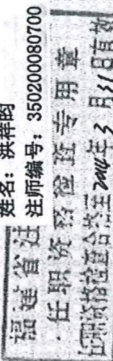 姓名：洪祥昀
注师编号：350200080700
福建省注
任职资格检查专用章
任职资格检查合格至2014年3月31日有效